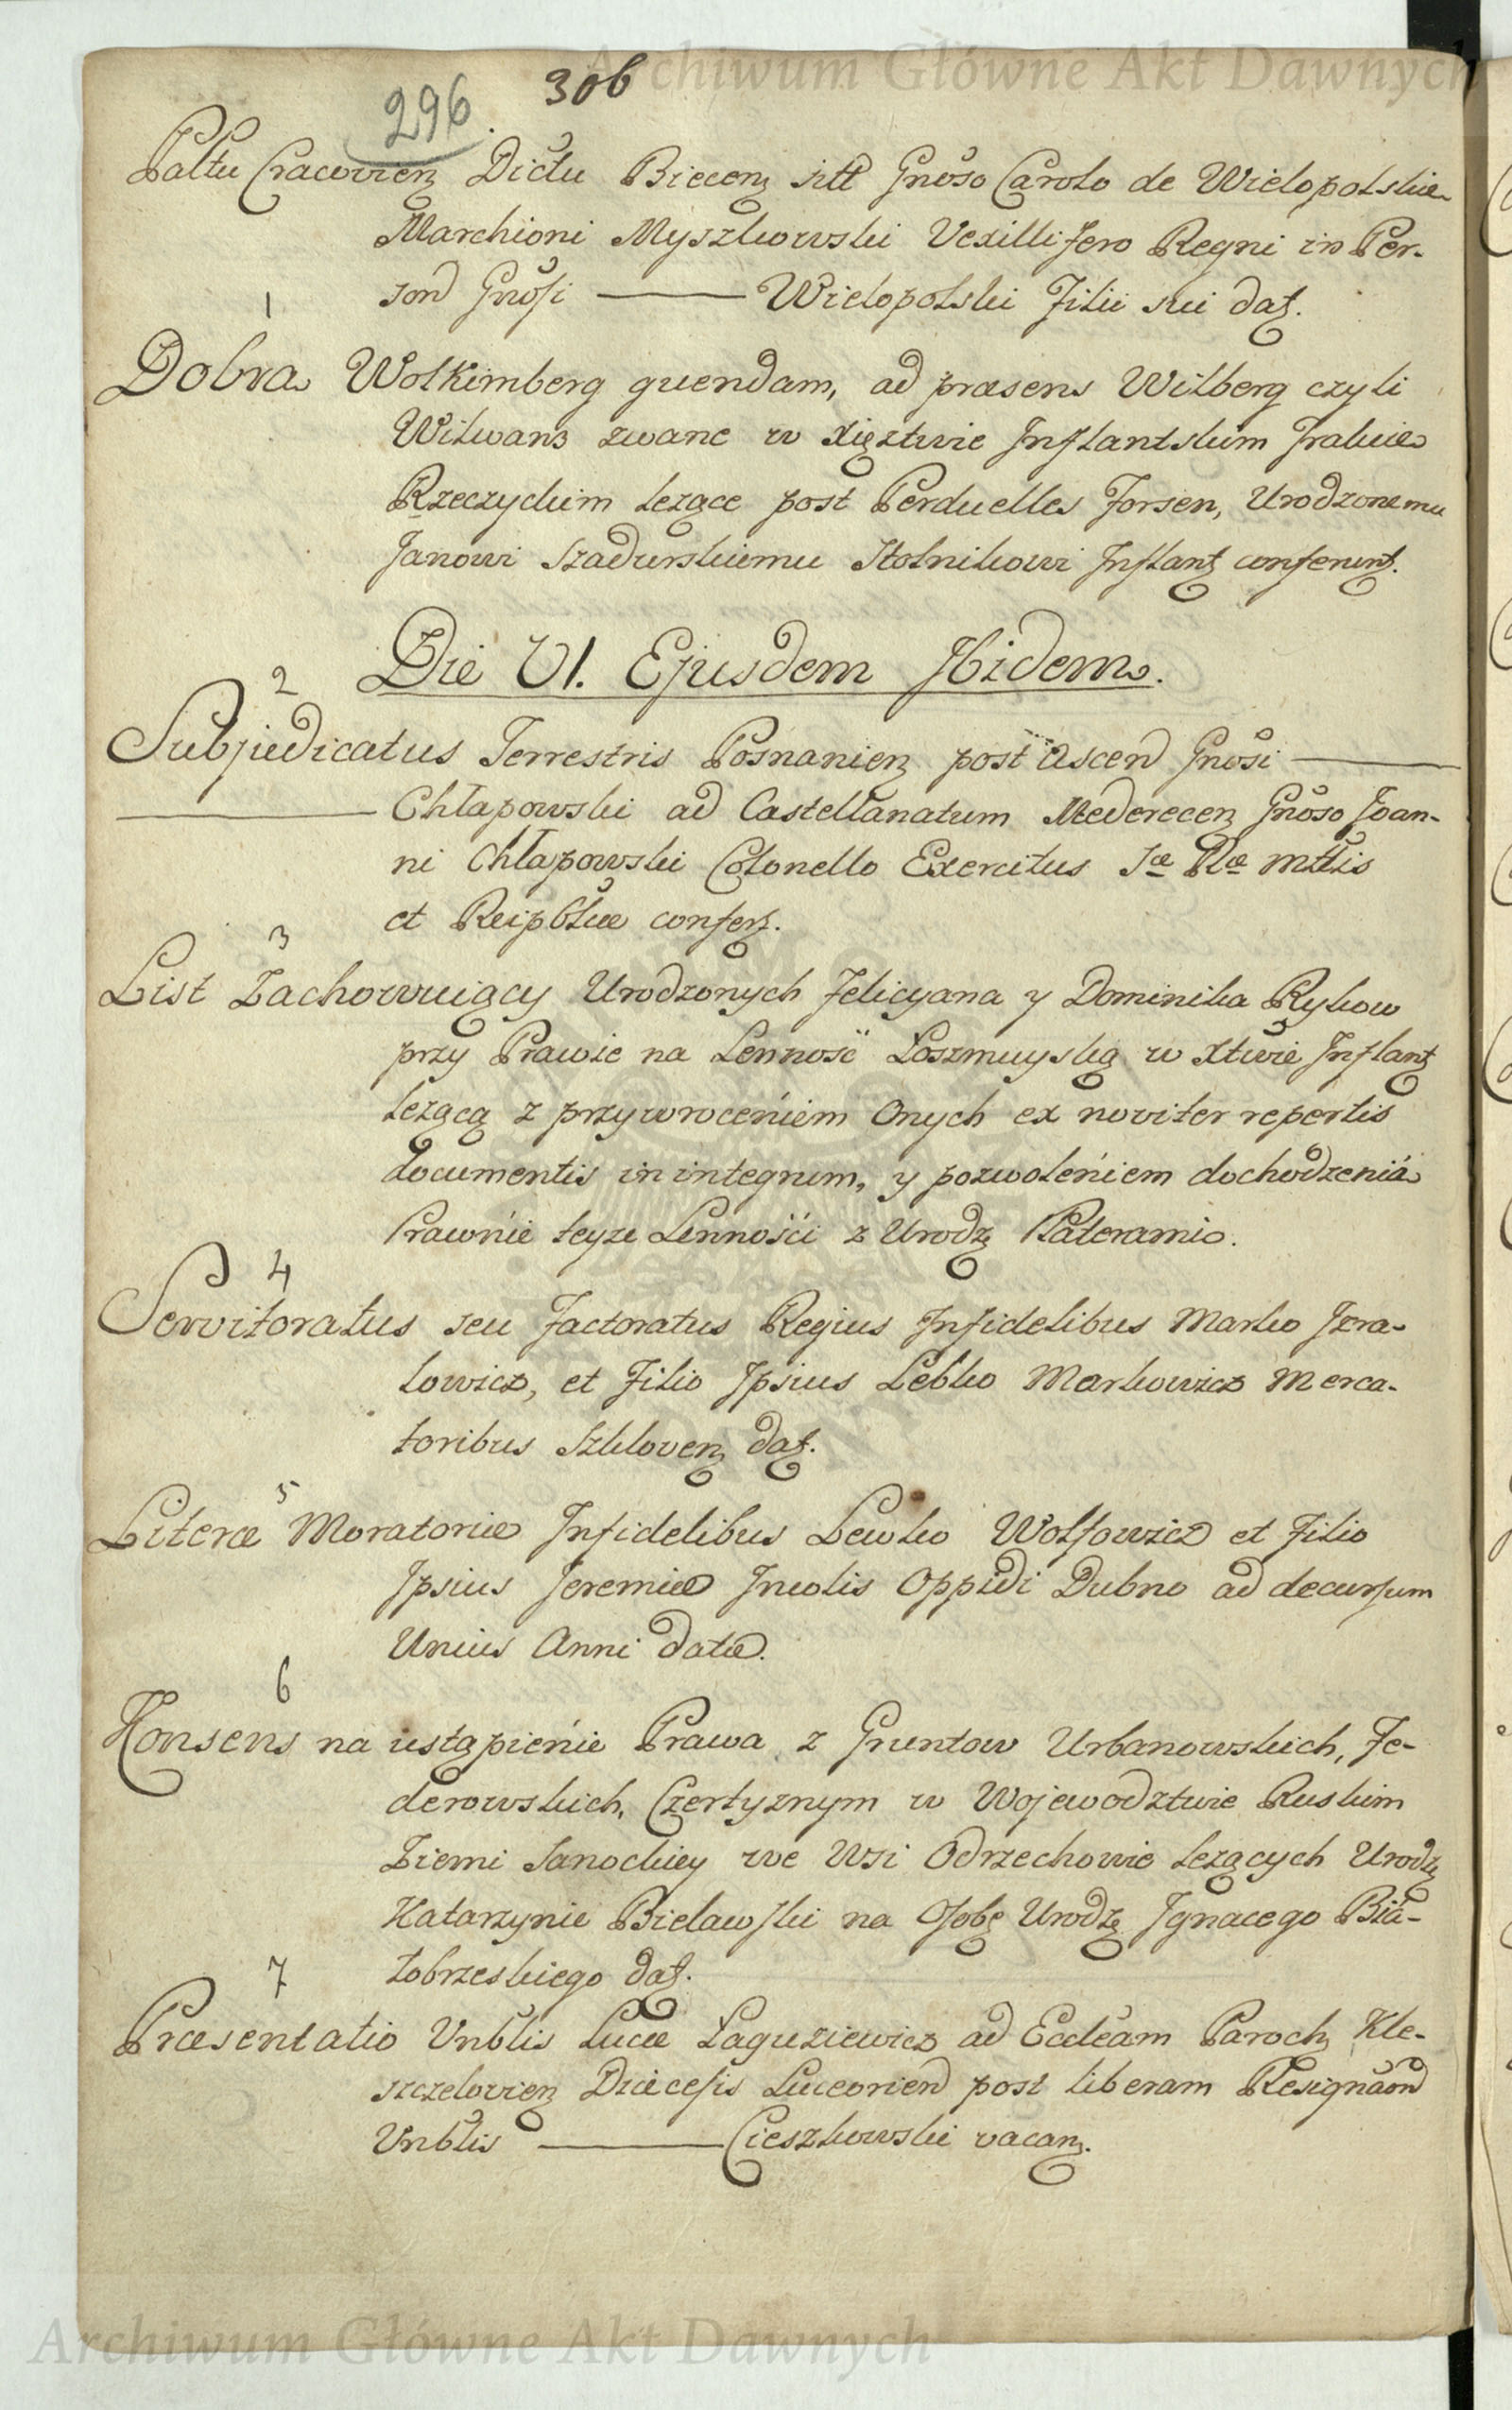 Archiwum Główne Akt Dawnych
296. 306
Paltu Cracovien Dictu Biecen sitt Gnoso Carolo de Wielopolskie
Marchioni Myszkowski Vexillifero Regni in Per-
son Gnosi ——— Wielopolski Filii sui dat.
1
Dobra Wolkimberg quendam, ad præsens Wilberg czyli
Wilwans zwane w Xięztwie Inflantskim Trakcie
Rzeczyckim leżące post Perduelles Forsen, Urodzonemu
Janowi Szadurskiemu Stolnikowi Inflant conferunt.
Die VI. Ejusdem Ibidem.
2
Subjudicatus Terrestris Posnanien post Ascen Gnosi ———
——— Chłapowski ad Castellanatum Mederecen Gnoso Joan-
ni Chłapowski Colonello Exercitus Sæ Ræ mttis
et Reipblicæ confert.
3
List Zachowuiący Urodzonych Felicyana y Dominika Rykow
przy Prawie na Lenność Loszmuyską w Xtwie Inflant
leżącą z przywroceńiem Onych ex noviter repertis
documentis in integrum, y pozwoleńiem dochodzenia
Prawńie teyże Lennośći z Urodz Platerami.
4
Servitoratus seu Factoratus Regius Infidelibus Marko Izra-
lowicz, et Filio Ipsius Lebko Markowicz Merca-
toribus Szkloven dat.
5
Literæ Moratoriæ Infidelibus Lewko Wolfowicz et Filio
Ipsius Jeremiæ Incolis Oppidi Dubno ad decursum
Unius Anni datæ.
6
Konsens na ustąpieńie Prawa z Gruntow Urbanowskich, Fe-
derowskich, Czertyznym w Wojewodztwie Ruskim
Ziemi Sanockiey we Wsi Odrzechowie leżących Urodz
Katarzynie Bielawski na Osobę Urodz Ignacego Bia-
łobrzeskiego dat.
7
Præsentatio Vnblis Lucæ Laguziewicz ad Eccleam Paroch Kle-
szczelovien Diæcesis Luceorien post liberam Resignaon
Vnblis ——— Cieszkowski vacan.
Archiwum Główne Akt Dawnych